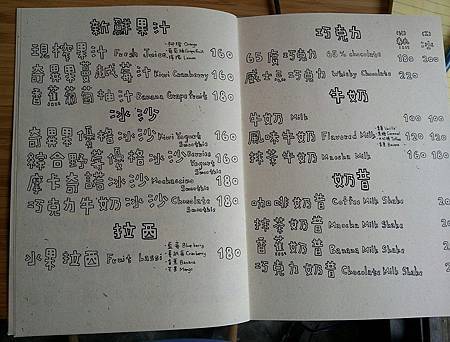 新鮮果汁
現榨果汁 Fresh Juice 160
・柳橙 Orange
・葡萄柚 Grapefruit
・檸檬 Lemon
奇異果蔓越莓汁 Kiwi Cranberry 160
香蕉葡萄柚汁 Banana Grapefruit 180
冰沙
奇異果優格冰沙 Kiwi Yogurt Smoothie 160
綜合野莓優格冰沙 Berries Yogurt Smoothie 160
摩卡奇諾冰沙 Mochaccino Smoothie 180
巧克力牛奶冰沙 Chocolate Smoothie 180
拉西
水果拉西 Fruit Lassi 180
・藍莓 Blueberry
・蔓越莓 Cranberry
・香蕉 Banana
・芒果 Mango
巧克力
熱 冰
65度巧克力 65% chocolate 180 200
威士忌巧克力 Whisky Chocolate 220
牛奶
牛奶 Milk 100 100
風味牛奶 Flavored Milk
抹茶牛奶 Maccha Milk 160 180
奶昔
咖啡奶昔 Coffee Milk Shake
抹茶奶昔 Maccha Milk Shake
香蕉奶昔 Banana Milk Shake
巧克力奶昔 Chocolate Milk Shake